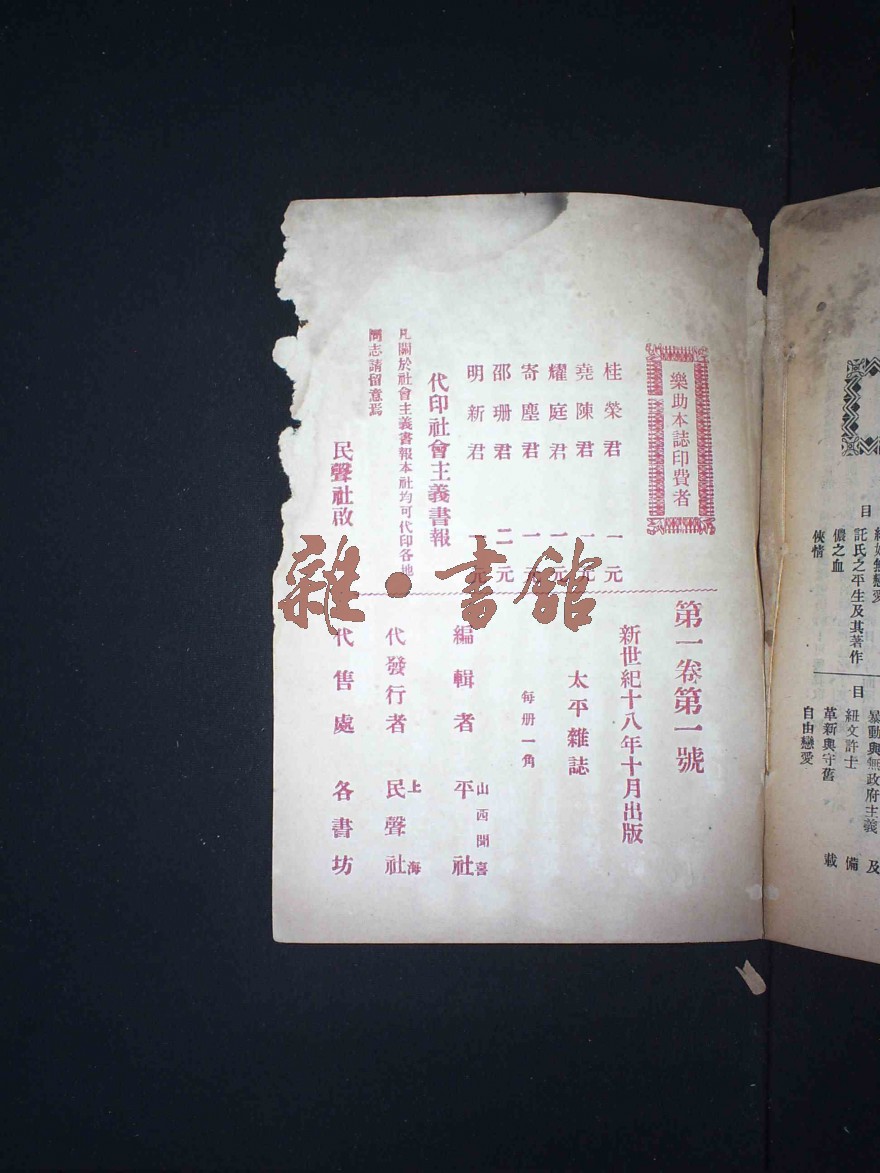 樂助本誌印費者
桂榮君 一元
堯陳君 一元
耀庭君 一元
寄塵君 一元
邵珊君 二元
明新君 一元
代印社會主義書報
凡關於社會主義書報本社均可代印各地
同志請留意焉
民聲社啟
第一卷第一號
新世紀十八年十月出版
太平雜誌
每册一角
編輯者 山西聞喜 平社
代發行者 上海 民聲社
代售處 各書坊
雜·書館
目
無戀愛
託氏之平生及其著作
儂之血
俠情
目
暴動與無政府主義
紐文許士
革新與守舊
自由戀愛
及
備
載